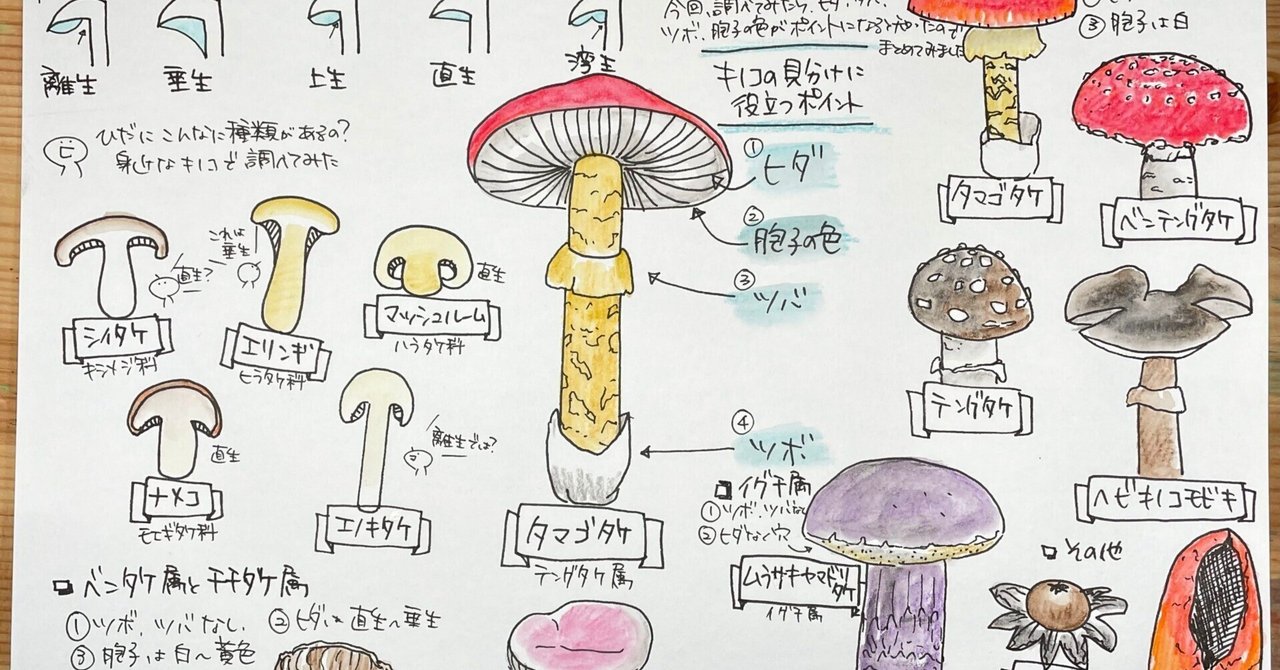 離生
垂生
上生
直生
湾生
ひだにこんなに種類があるの?
身近なキノコで調べてみた
今回、調べてみたら、ヒダ、ツバ、
ツボ、胞子の色がポイントになる
まとめてみました
キノコの見分けに
役立つポイント
① ヒダ
② 胞子の色
③ ツバ
④ ツボ
③ 胞子は白
タマゴタケ
ベニテングタケ
直生?
シイタケ
キシメジ科
これは
垂生
エリンギ
ヒラタケ科
直生
マッシュルーム
ハラタケ科
直生
ナメコ
モエギタケ科
離生では?
エノキタケ
タマゴタケ
テングタケ属
テングタケ
ヘビキノコモドキ
イグチ属
① ツボ、ツバなし
② ヒダなく穴
ムラサキヤマドリタケ
イグチ属
その他
ベニタケ属とチチタケ属
① ツボ、ツバなし
② ヒダは直生〜垂生
③ 胞子は白〜黄色